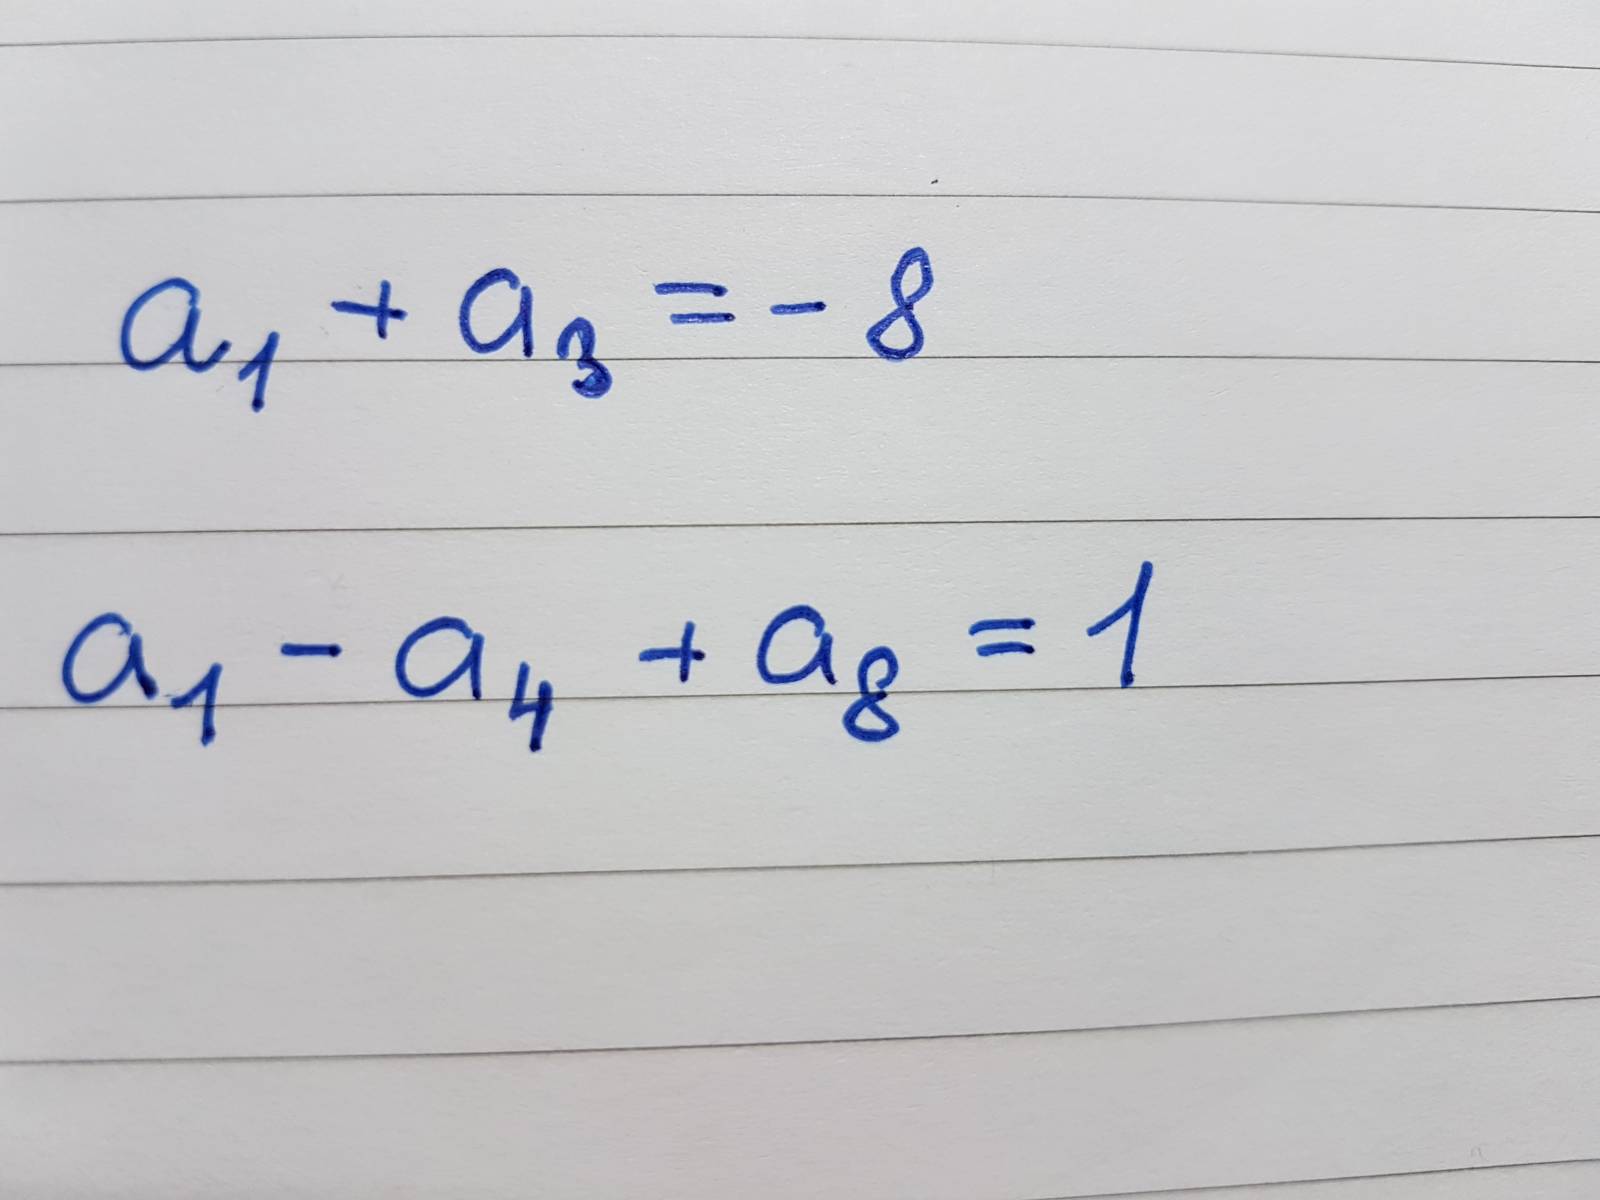 a₁ + a₃ = - 8
a₁ - a₄ + a₈ = 1